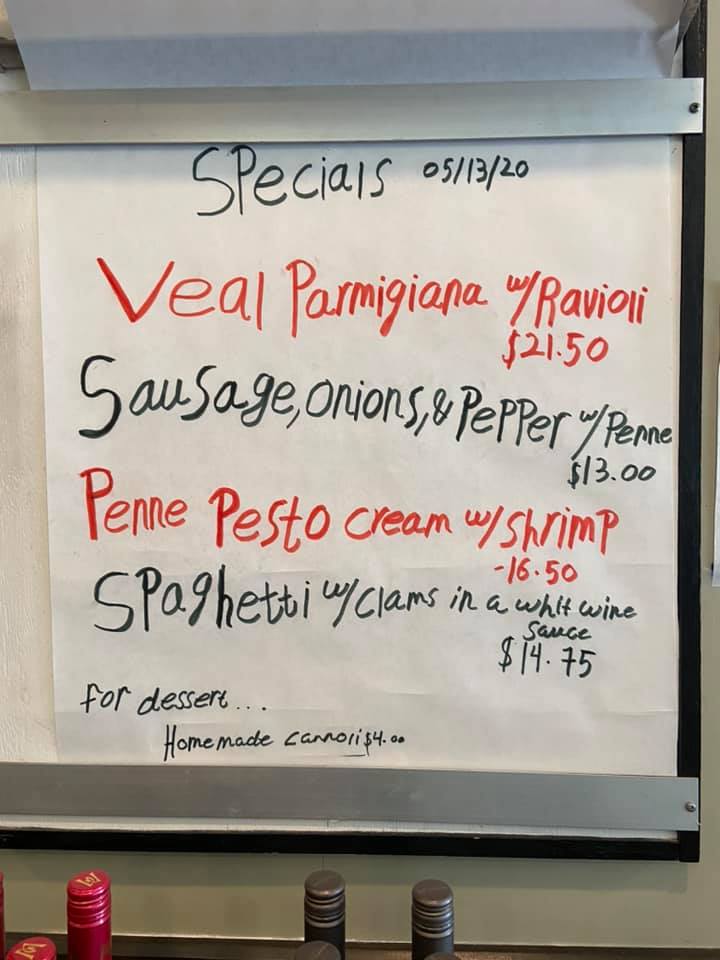 Specials 05/13/20
Veal Parmigiana w/Ravioli
$21.50
Sausage, onions, & Pepper w/Penne
$13.00
Penne Pesto cream w/shrimp
-16.50
Spaghetti w/clams in a whit wine
sauce
$14.75
for dessert...
Homemade cannoli $4.00